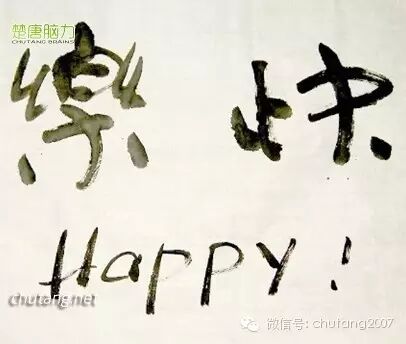 楚唐脑力
CHUTANG BRAINS
快樂
Happy!
chutang.net
微信号: chutang2007